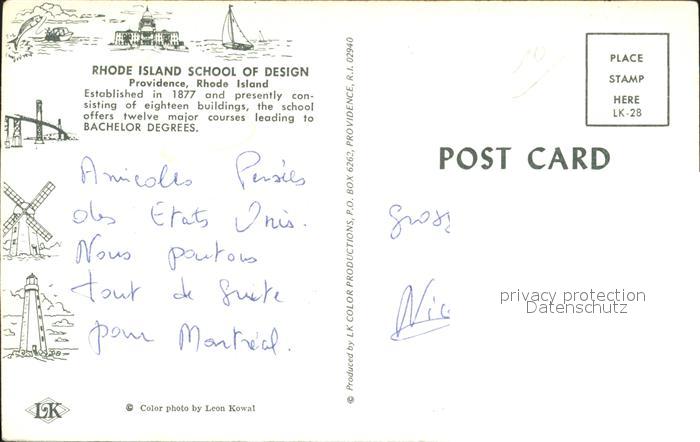 RHODE ISLAND SCHOOL OF DESIGN
Providence, Rhode Island
Established in 1877 and presently con-
sisting of eighteen buildings, the school
offers twelve major courses leading to
BACHELOR DEGREES.
Amicales Pensées
des Etats Unis.
Nous partons
tout de suite
pour Montréal.
LK
© Color photo by Leon Kowal
© Produced by LK COLOR PRODUCTIONS, P.O. BOX 6262, PROVIDENCE, R.I. 02940
PLACE
STAMP
HERE
LK-28
POST CARD
Gross
Nic
privacy protection
Datenschutz